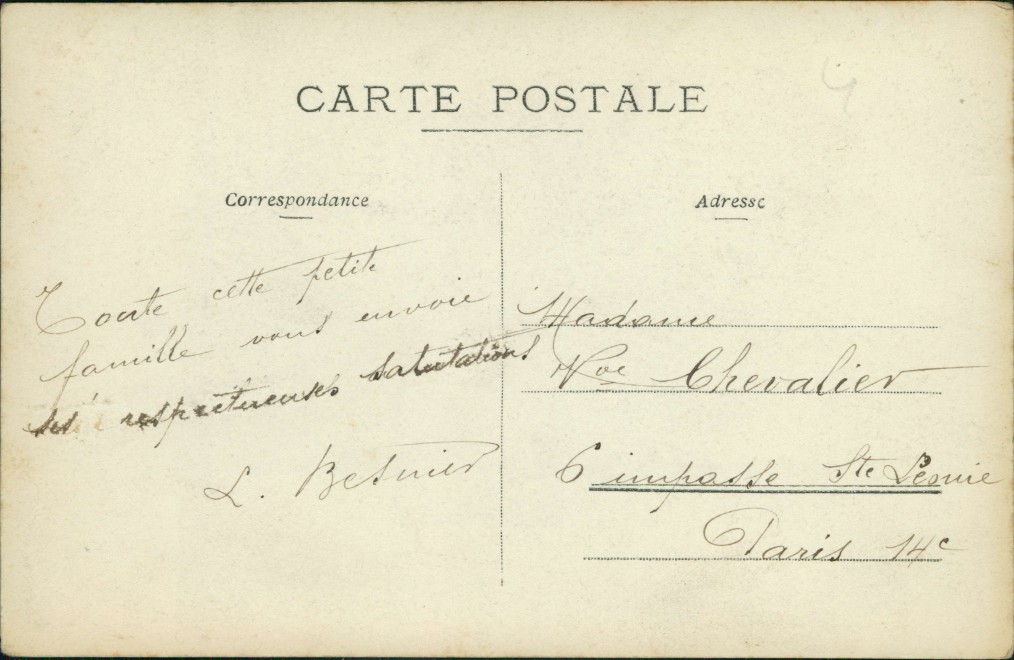 CARTE POSTALE
Correspondance
Toute cette petite
famille vous envoie
ses respectueuses salutations
L. Besnier
Adresse
Madame
Vve Chevalier
6 impasse Ste Léonie
Paris 14e